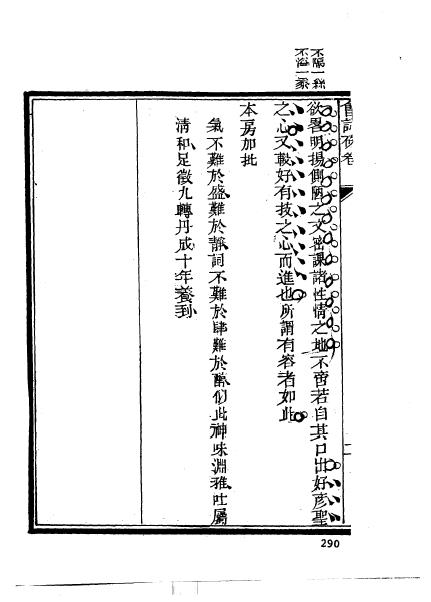 不隔一絲
不溢一黍
會試硃卷
欲畧明揚側陋之文密課諸性情之地不啻若自其口出好彥聖
之心又較好有技之心而進也所謂有容者如此
本房加批
氣不難於盛難於靜詞不難於肆難於醇似此神味淵雅吐屬
清和足徵九轉丹成十年養到
二
290